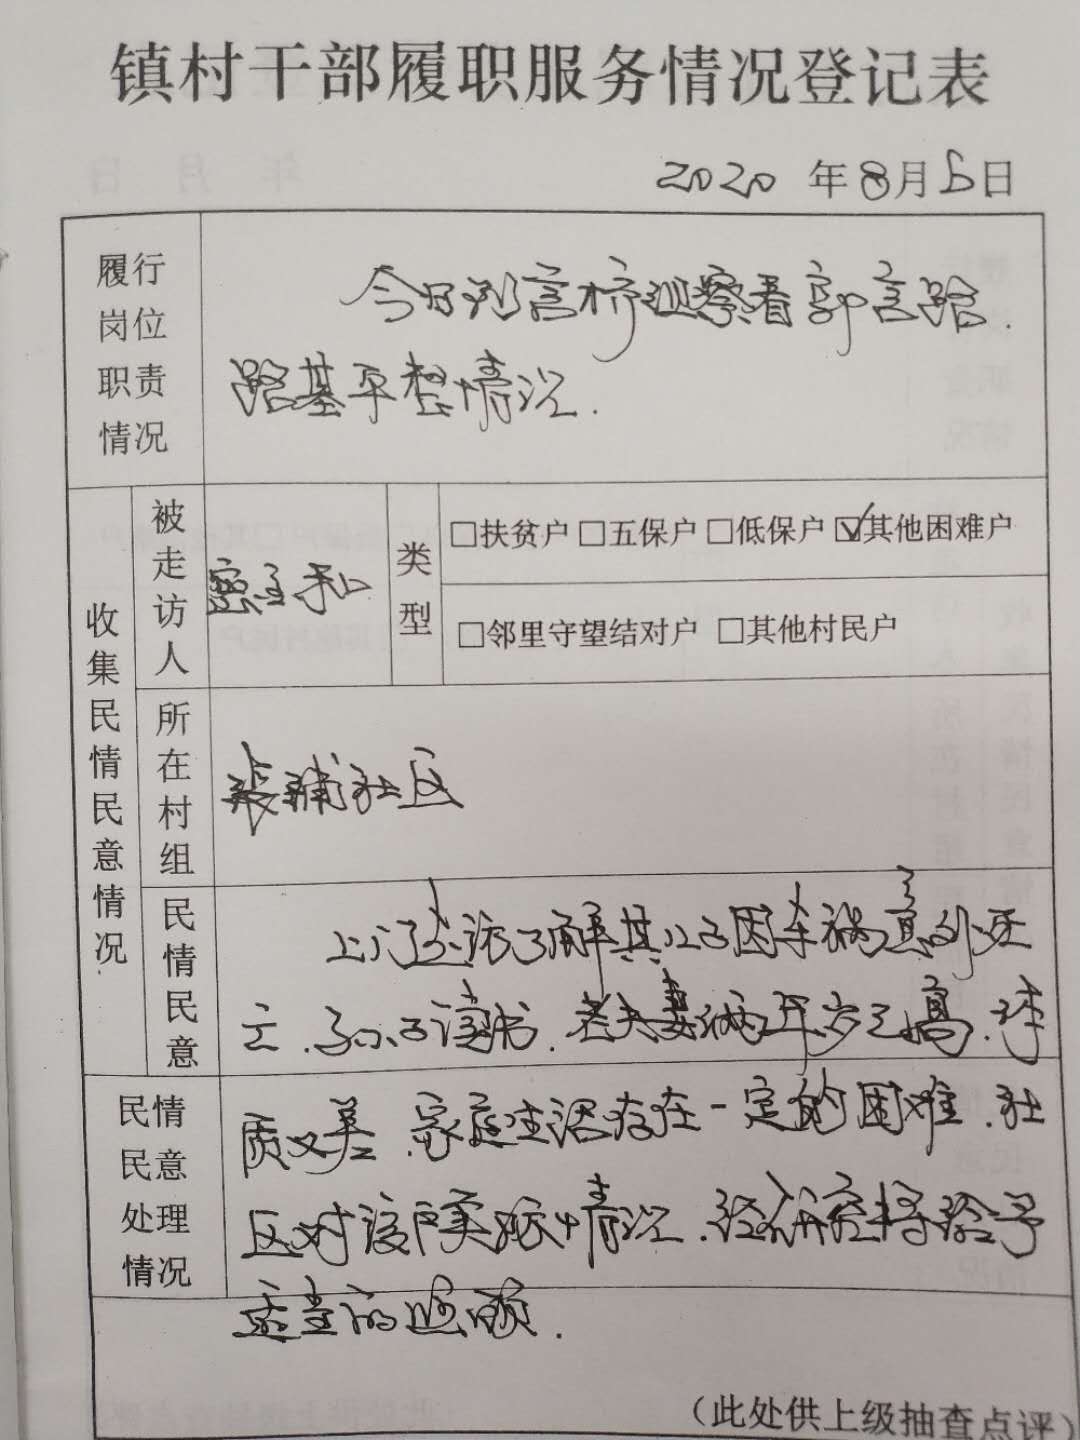 镇村干部履职服务情况登记表
2020 年 8 月 6 日
履行岗位职责情况
今日到言桥巡察看郭言路.
路基平整情况.
收集民情民意情况
被走访人
类型
□扶贫户 □五保户 □低保户 ☑其他困难户
□邻里守望结对户 □其他村民户
所在村组
张浦社区
民情民意
上门走访了解其儿子因车祸意外死
亡.孙子读书.老夫妻俩年岁已高.体
民情民意处理情况
质又差.家庭生活存在一定的困难.社
区对该户实际情况.经研究将给予
适当的照顾.
(此处供上级抽查点评)